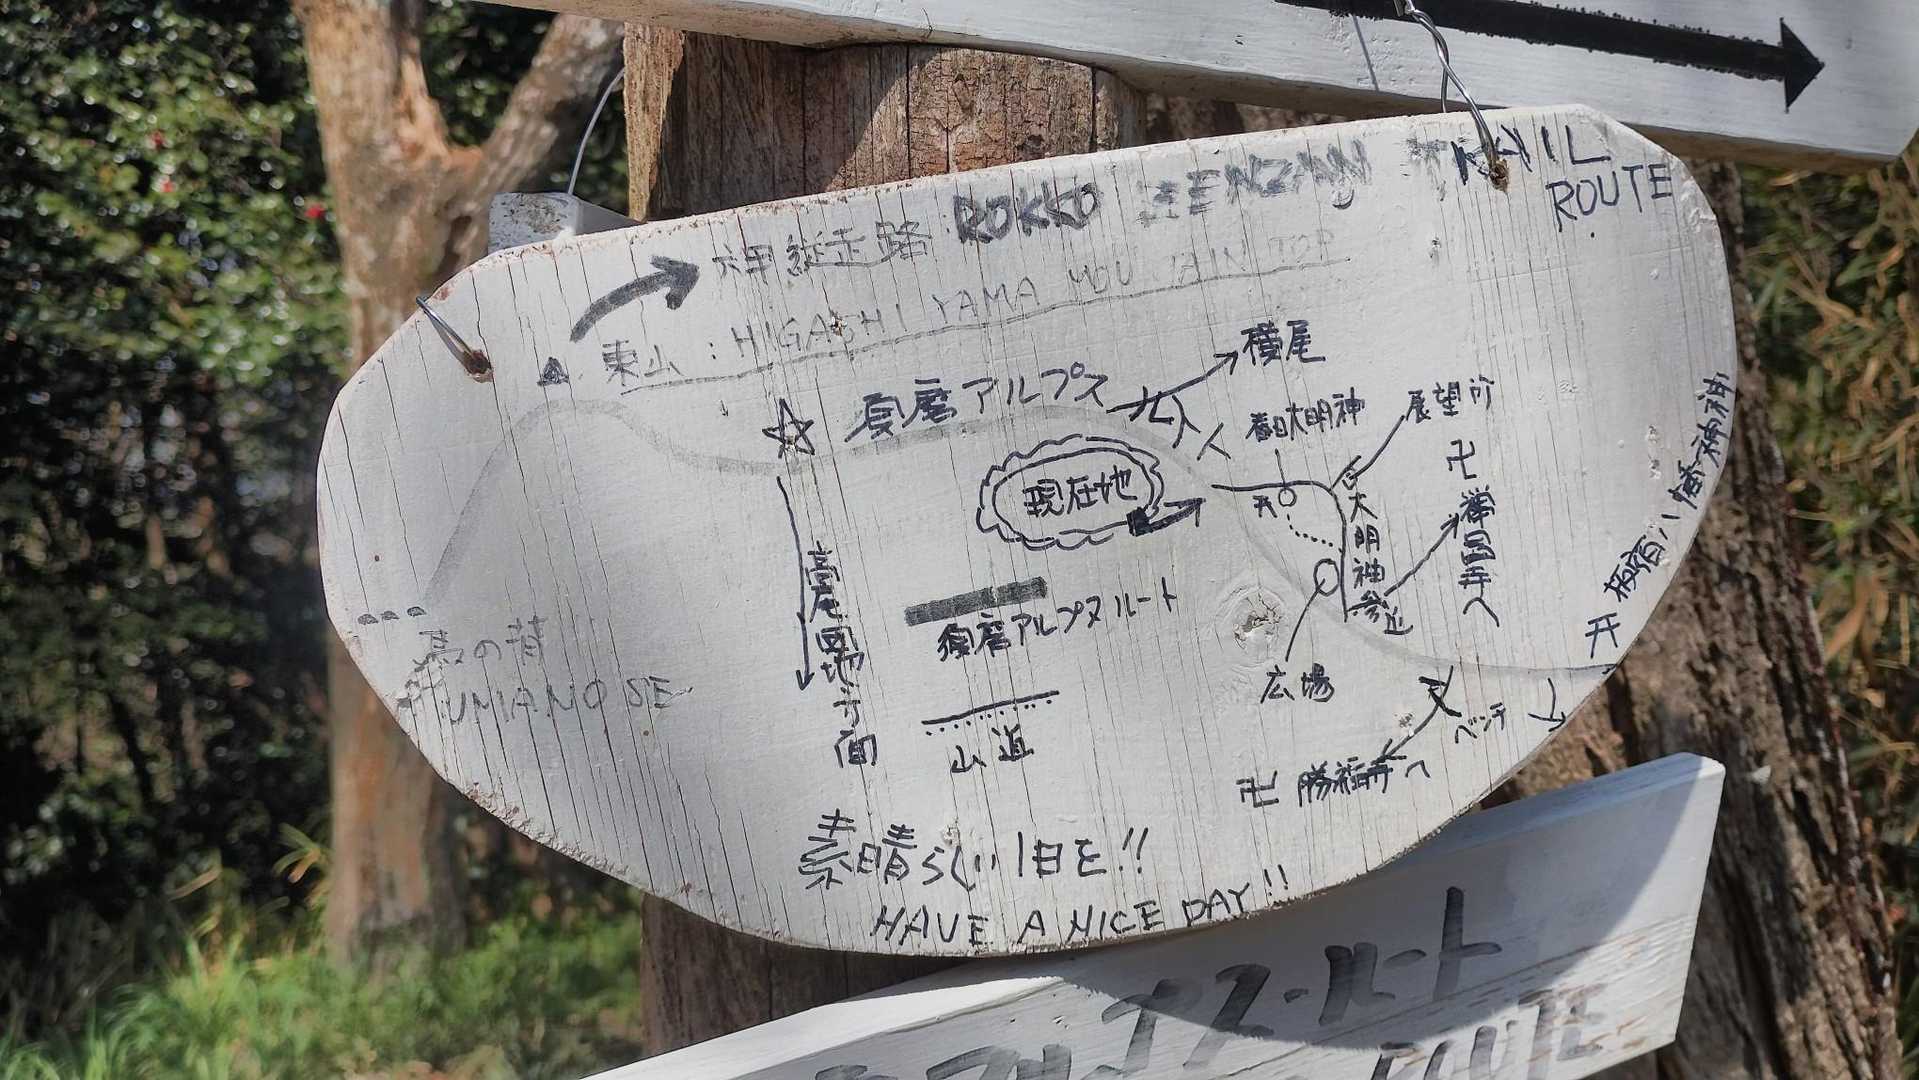 六甲縦走路 ROKKO ZENZAN TRAIL
ROUTE
東山 : HIGASHI YAMA MOUNTAIN TOP
須磨アルプス
横尾
春日大明神
展望所
現在地
大明神参道
卍 禅昌寺へ
板宿八幡神社
高尾団地方面
須磨アルプスルート
馬の背
UMANOSE
山道
広場
ベンチ
卍 勝福寺へ
素晴らしい1日を!!
HAVE A NICE DAY!!
プスルート
ROUTE